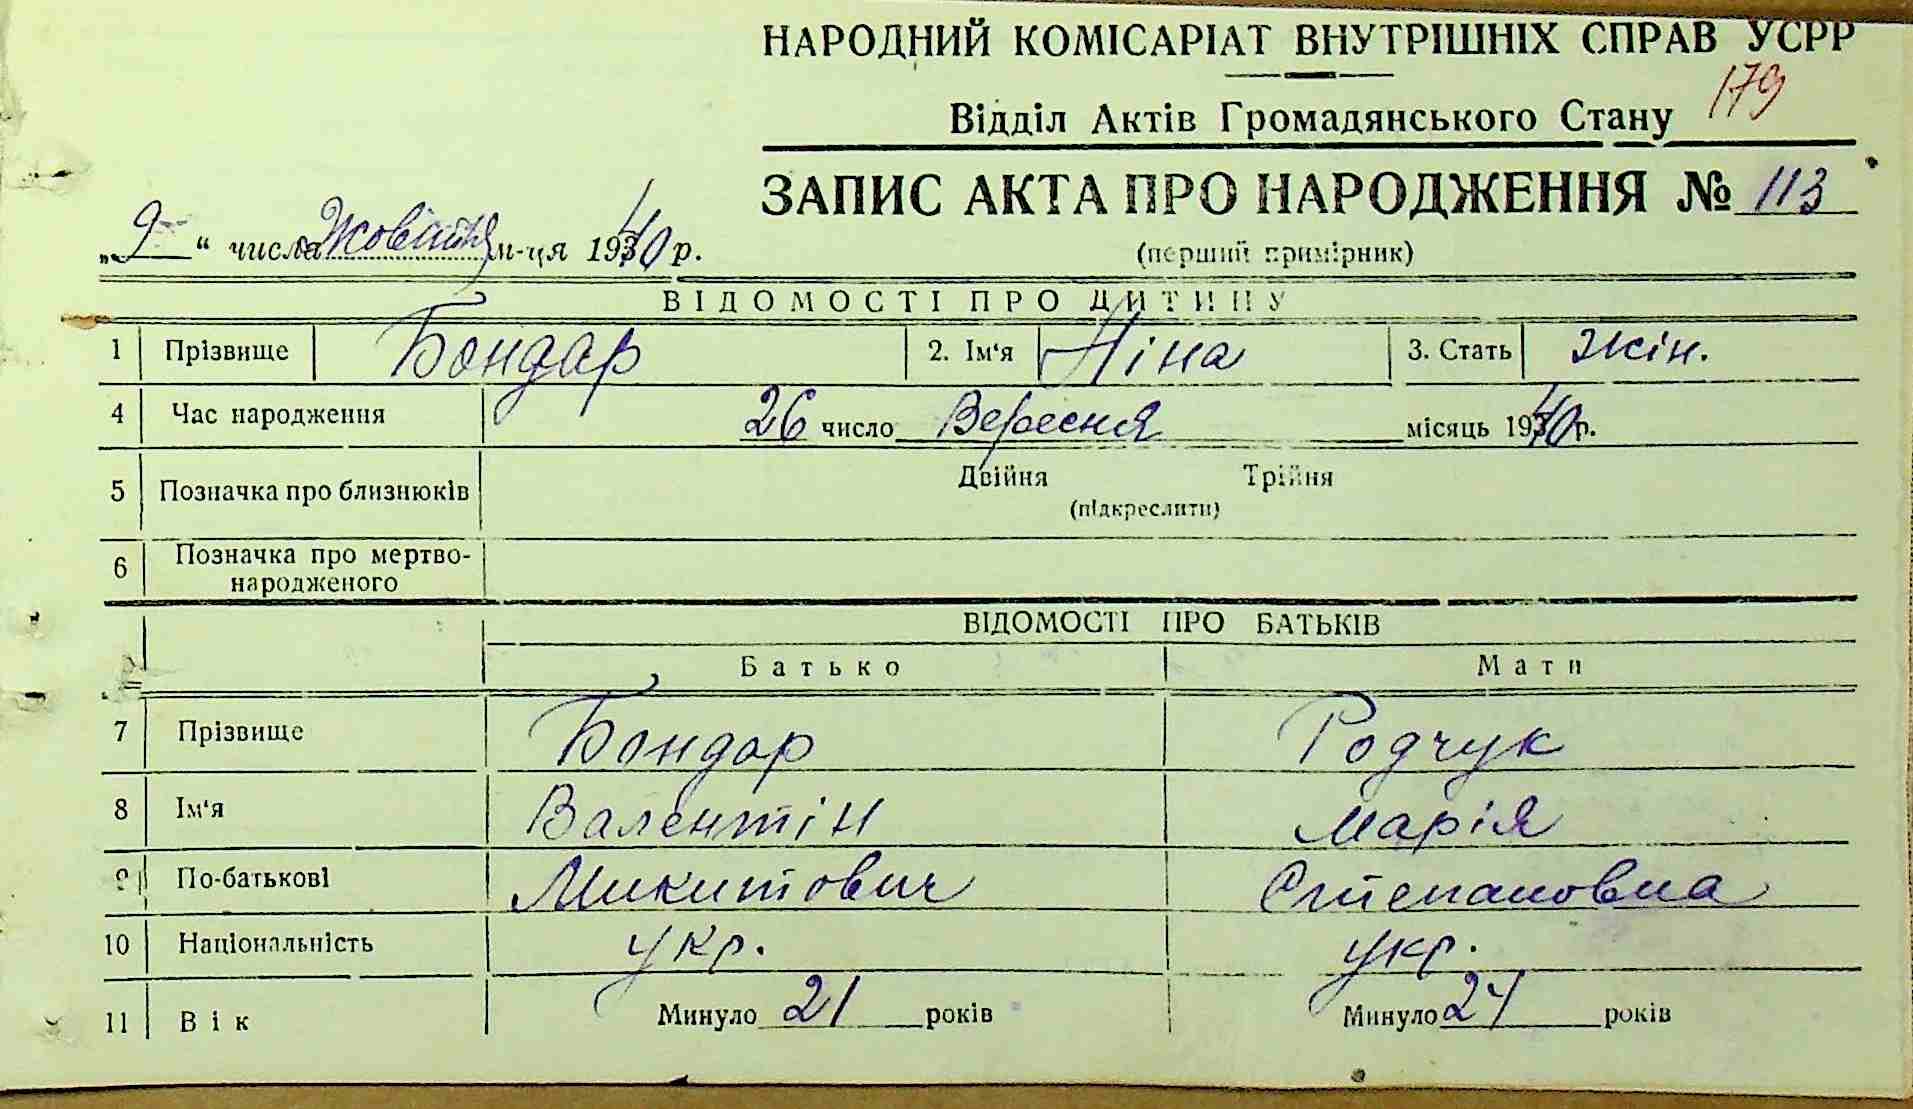 НАРОДНИЙ КОМІСАРІАТ ВНУТРІШНІХ СПРАВ УСРР
179
Відділ Актів Громадянського Стану
ЗАПИС АКТА ПРО НАРОДЖЕННЯ № 113
„9" числа Жовтня м-ця 1940 р.
(перший примірник)
ВІДОМОСТІ ПРО ДИТИНУ
1 Прізвище Бондар 2. Ім'я Ніна 3. Стать жін.
4 Час народження 26 число Вересня місяць 1940 р.
5 Позначка про близнюків Двійня Трійня
(підкреслити)
6 Позначка про мертво-
народженого
ВІДОМОСТІ ПРО БАТЬКІВ
Батько Мати
7 Прізвище Бондар Родчук
8 Ім'я Валентін Марія
9 По-батькові Микитович Степановна
10 Національність укр. укр.
11 Вік Минуло 21 років Минуло 24 років